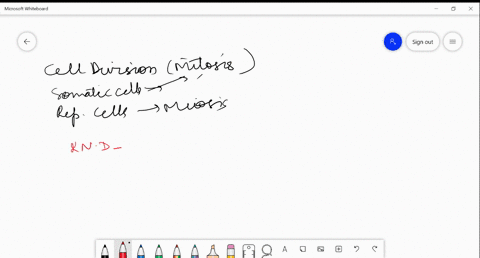 Microsoft Whiteboard
Sign out
Cell Division (Mitosis)
Somatic cells →
Rep. Cells → Miosis
K N. D –